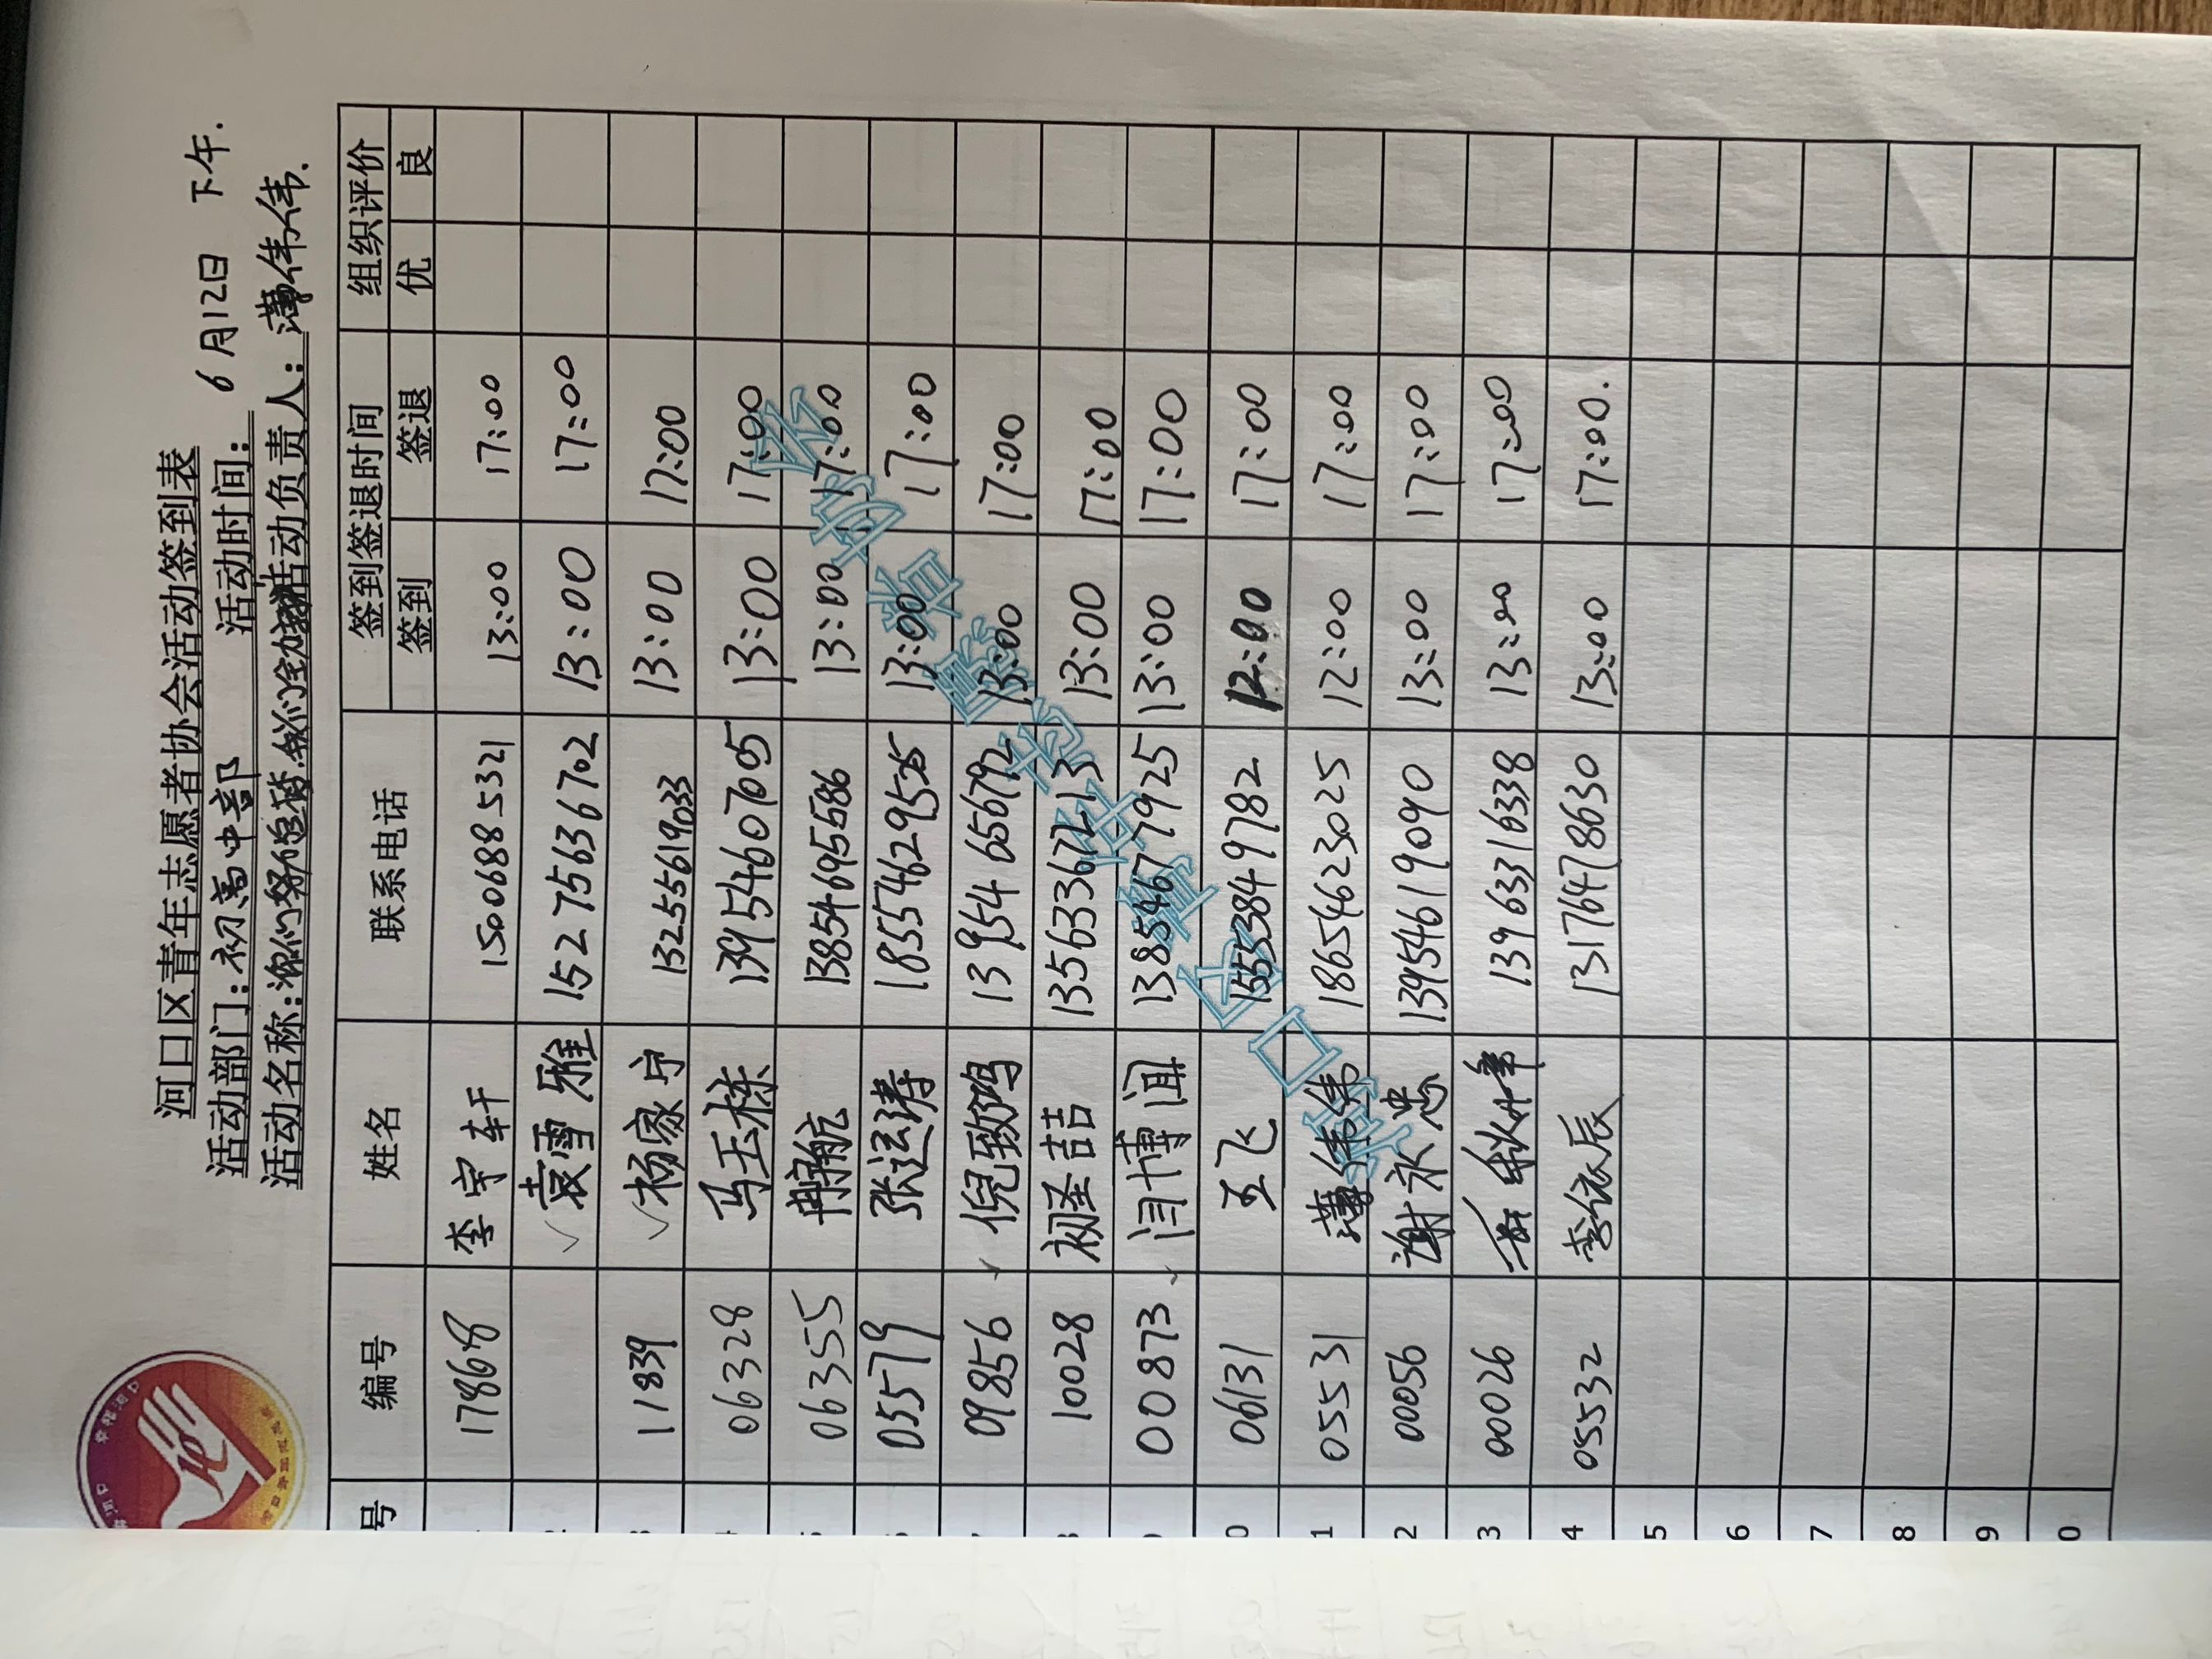 河口区青年志愿者协会活动签到表
活动部门：初高中部 活动时间：6月12日 下午.
活动名称：活动负责人：薄伟伟.
号 编号 姓名 联系电话 签到签退时间 组织评价
签到 签退 优 良
17868 李宇轩 15006885321 13:00 17:00
袁雪雅 15275636702 13:00 17:00
11839 杨家宁 13255619033 13:00 17:00
06328 马玉栋 13954607705 13:00 17:00
06355 冉航 13854695586 13:00 17:00
05579 张运涛 1855462955 13:00 17:00
09856 倪致鸿 13954656792 13:00 17:00
10028 初圣喆 13563367213 13:00 17:00
00873 闫博闻 13854677925 13:00 17:00
0 06131 王飞 15553849782 12:00 17:00
1 05531 薄伟伟 18654623025 12:00 17:00
2 00056 谢永忠 13954619090 13:00 17:00
3 00026 13963316338 13:00 17:00
4 05532 李依辰 13176478630 13:00 17:00.
5
6
7
8
9
0